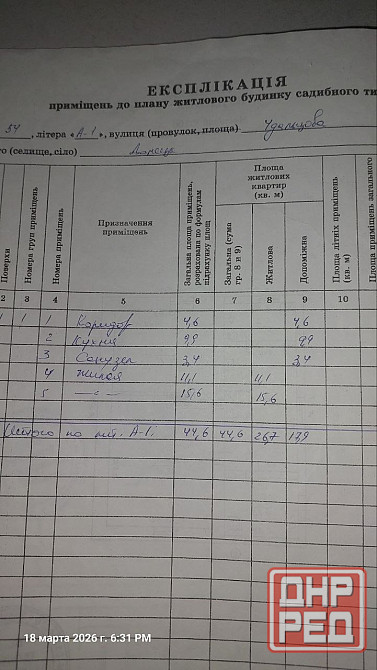 ЕКСПЛІКАЦІЯ
приміщень до плану житлового будинку садибного ти
54, літера «А-1», вулиця (провулок, площа)
го (селище, село)
Поверхи
Номера груп приміщень
Номера приміщень
Призначення приміщень
Загальна площа приміщень, розрахована по формулам підрахунку площ
Площа житлових квартир (кв. м)
Загальна (сума гр. 8 и 9)
Житлова
Допоміжна
Площа літніх приміщень (кв. м)
Площа приміщень загального
2 3 4 5 6 7 8 9 10
1 1 1 Коридор 4,6 4,6
2 Кухня 9,9 9,9
3 Санузел 3,4 3,4
4 Жилая 11,1 11,1
5 —"— 15,6 15,6
Итого по лит. А-1. 44,6 44,6 26,7 17,9
ДНР
РЕД
18 марта 2026 г. 6:31 PM